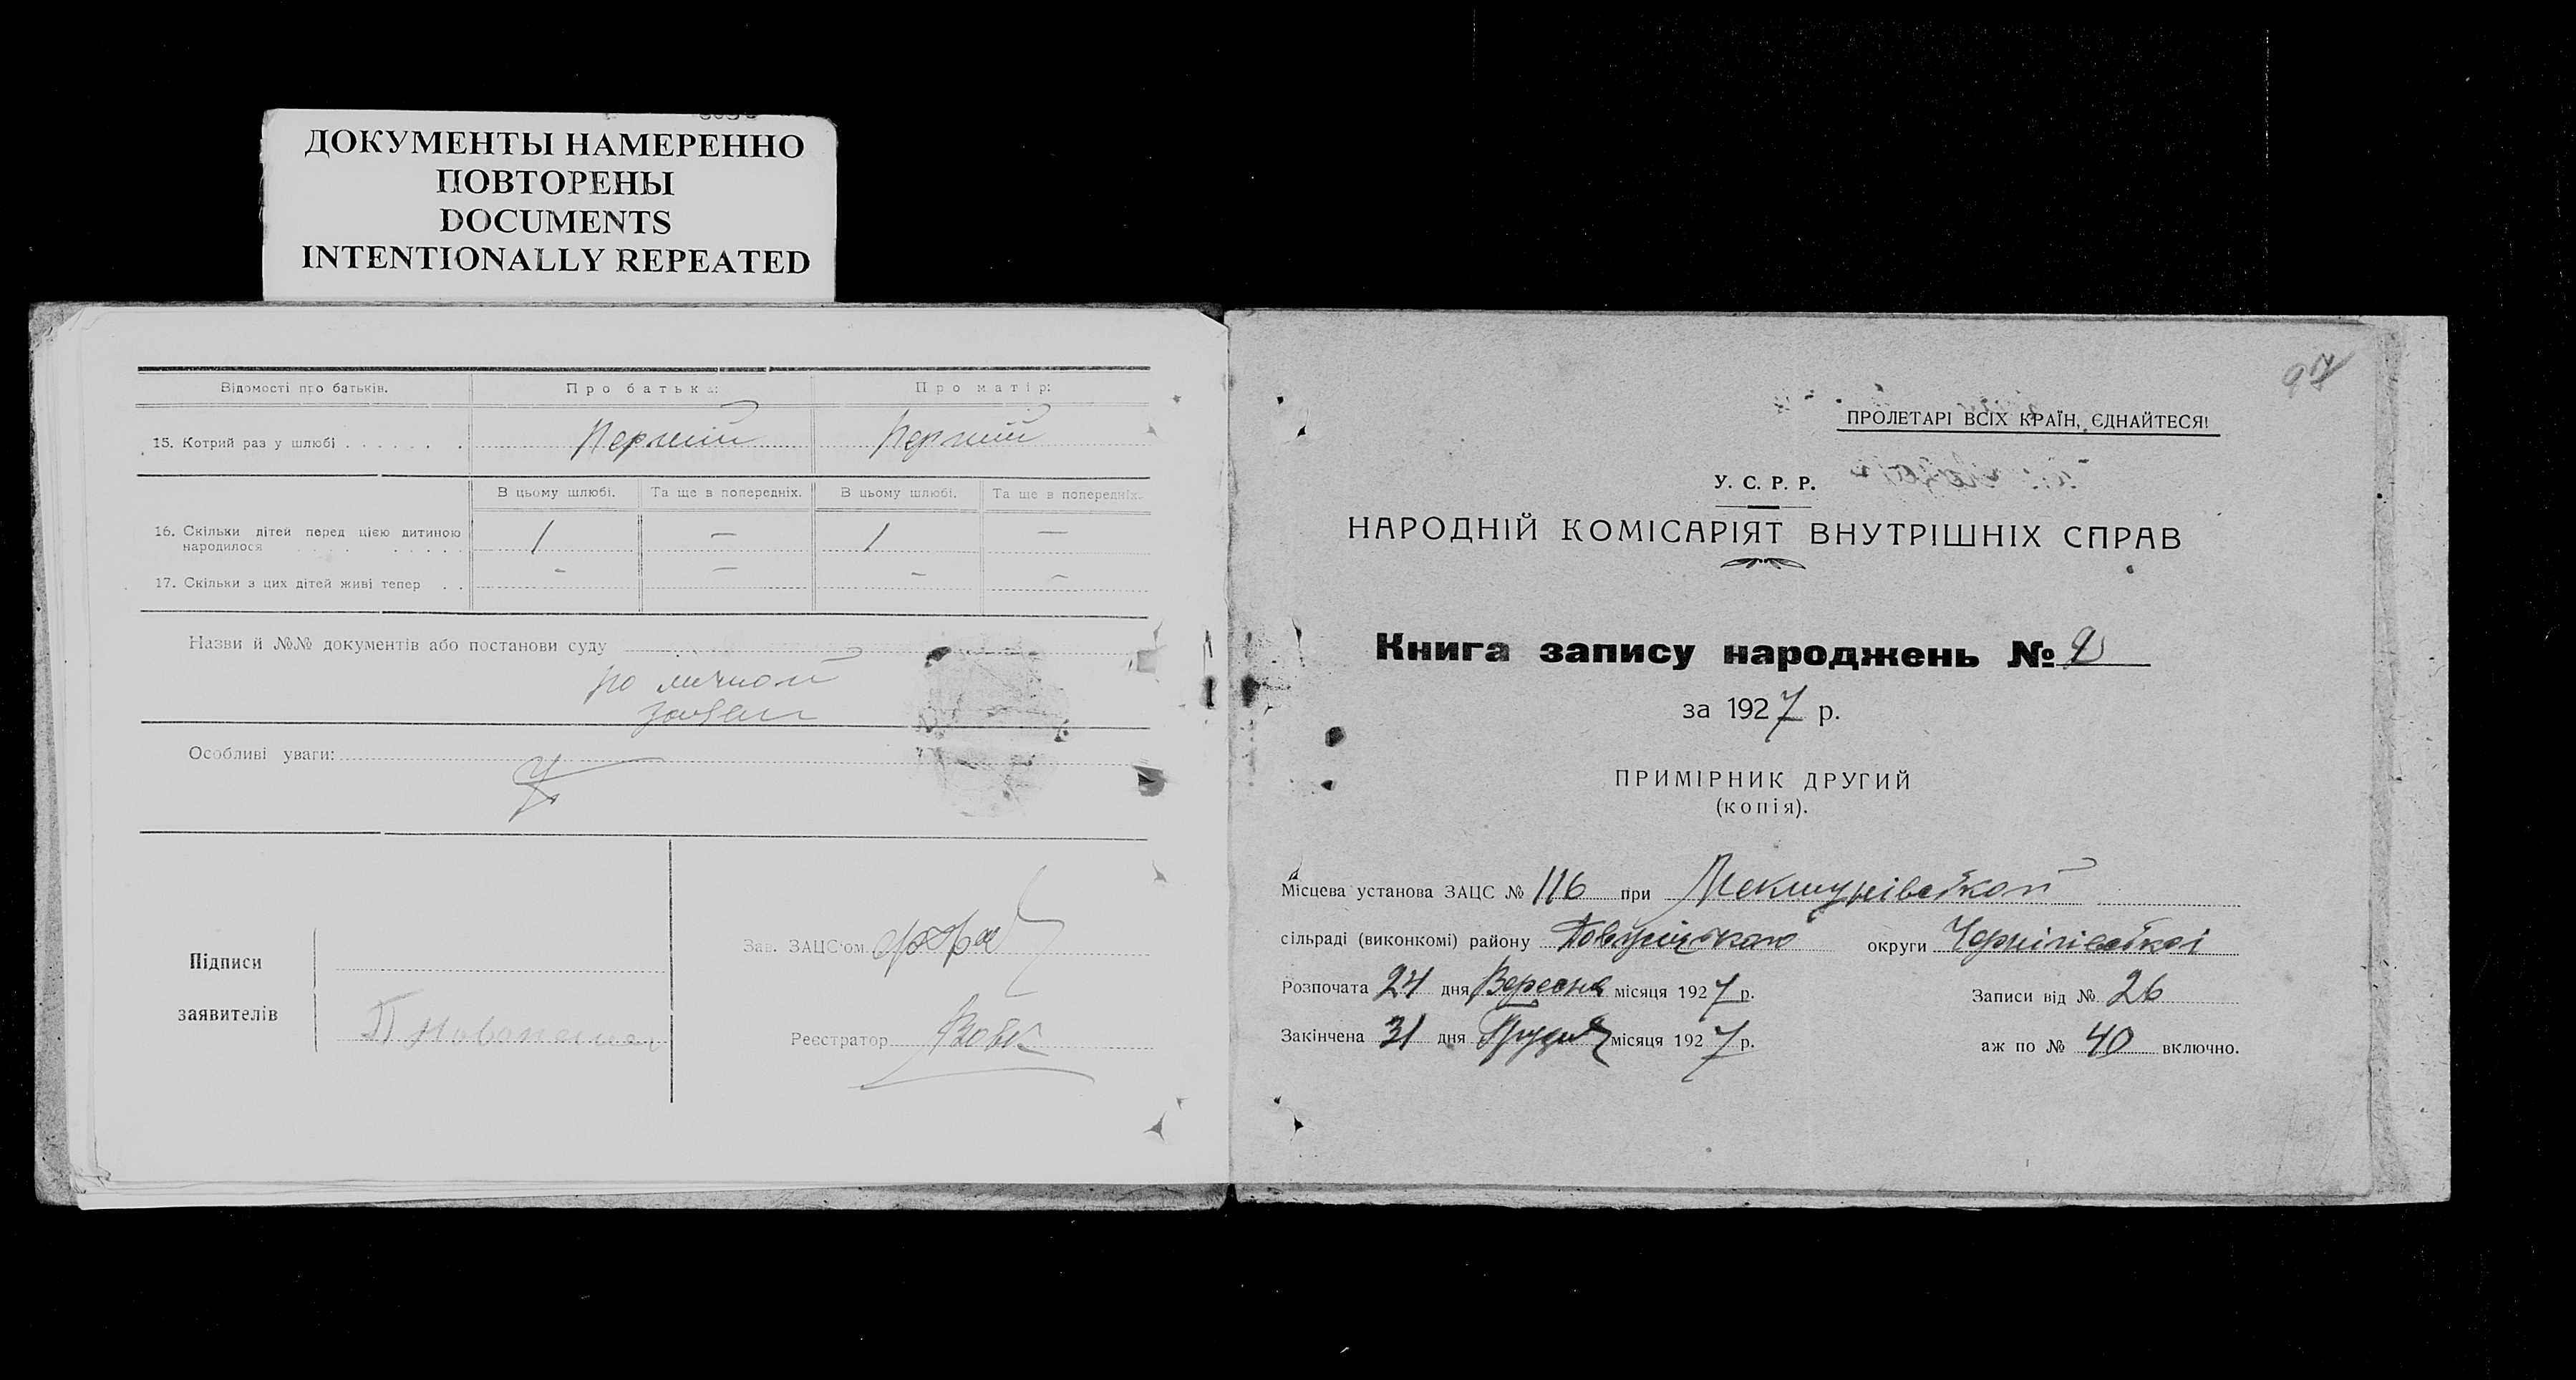 ДОКУМЕНТЫ НАМЕРЕННО
ПОВТОРЕНЫ
DOCUMENTS
INTENTIONALLY REPEATED
Відомості про батьків. Про батька: Про матір:
15. Котрий раз у шлюбі Перший Перший
В цьому шлюбі. Та ще в попередніх. В цьому шлюбі. Та ще в попередніх.
16. Скільки дітей перед цією дитиною
народилося 1 — 1 —
17. Скільки з цих дітей живі тепер - — - -
Назви й №№ документів або постанови суду
по личной
Особливі уваги:
Підписи
заявителів
Зав. ЗАЦС'ом
Реєстратор Вовк
97
ПРОЛЕТАРІ ВСІХ КРАЇН, ЄДНАЙТЕСЯ!
У. С. Р. Р.
НАРОДНІЙ КОМІСАРІЯТ ВНУТРІШНІХ СПРАВ
Книга запису народжень № 2
за 1927 р.
ПРИМІРНИК ДРУГИЙ
(копія).
Місцева установа ЗАЦС № 116 при
сільраді (виконкомі) району округи Чернігівської
Розпочата 24 дня Вересня місяця 1927 р. Записи від № 26
Закінчена 31 дня Грудня місяця 1927 р. аж по № 40 включно.